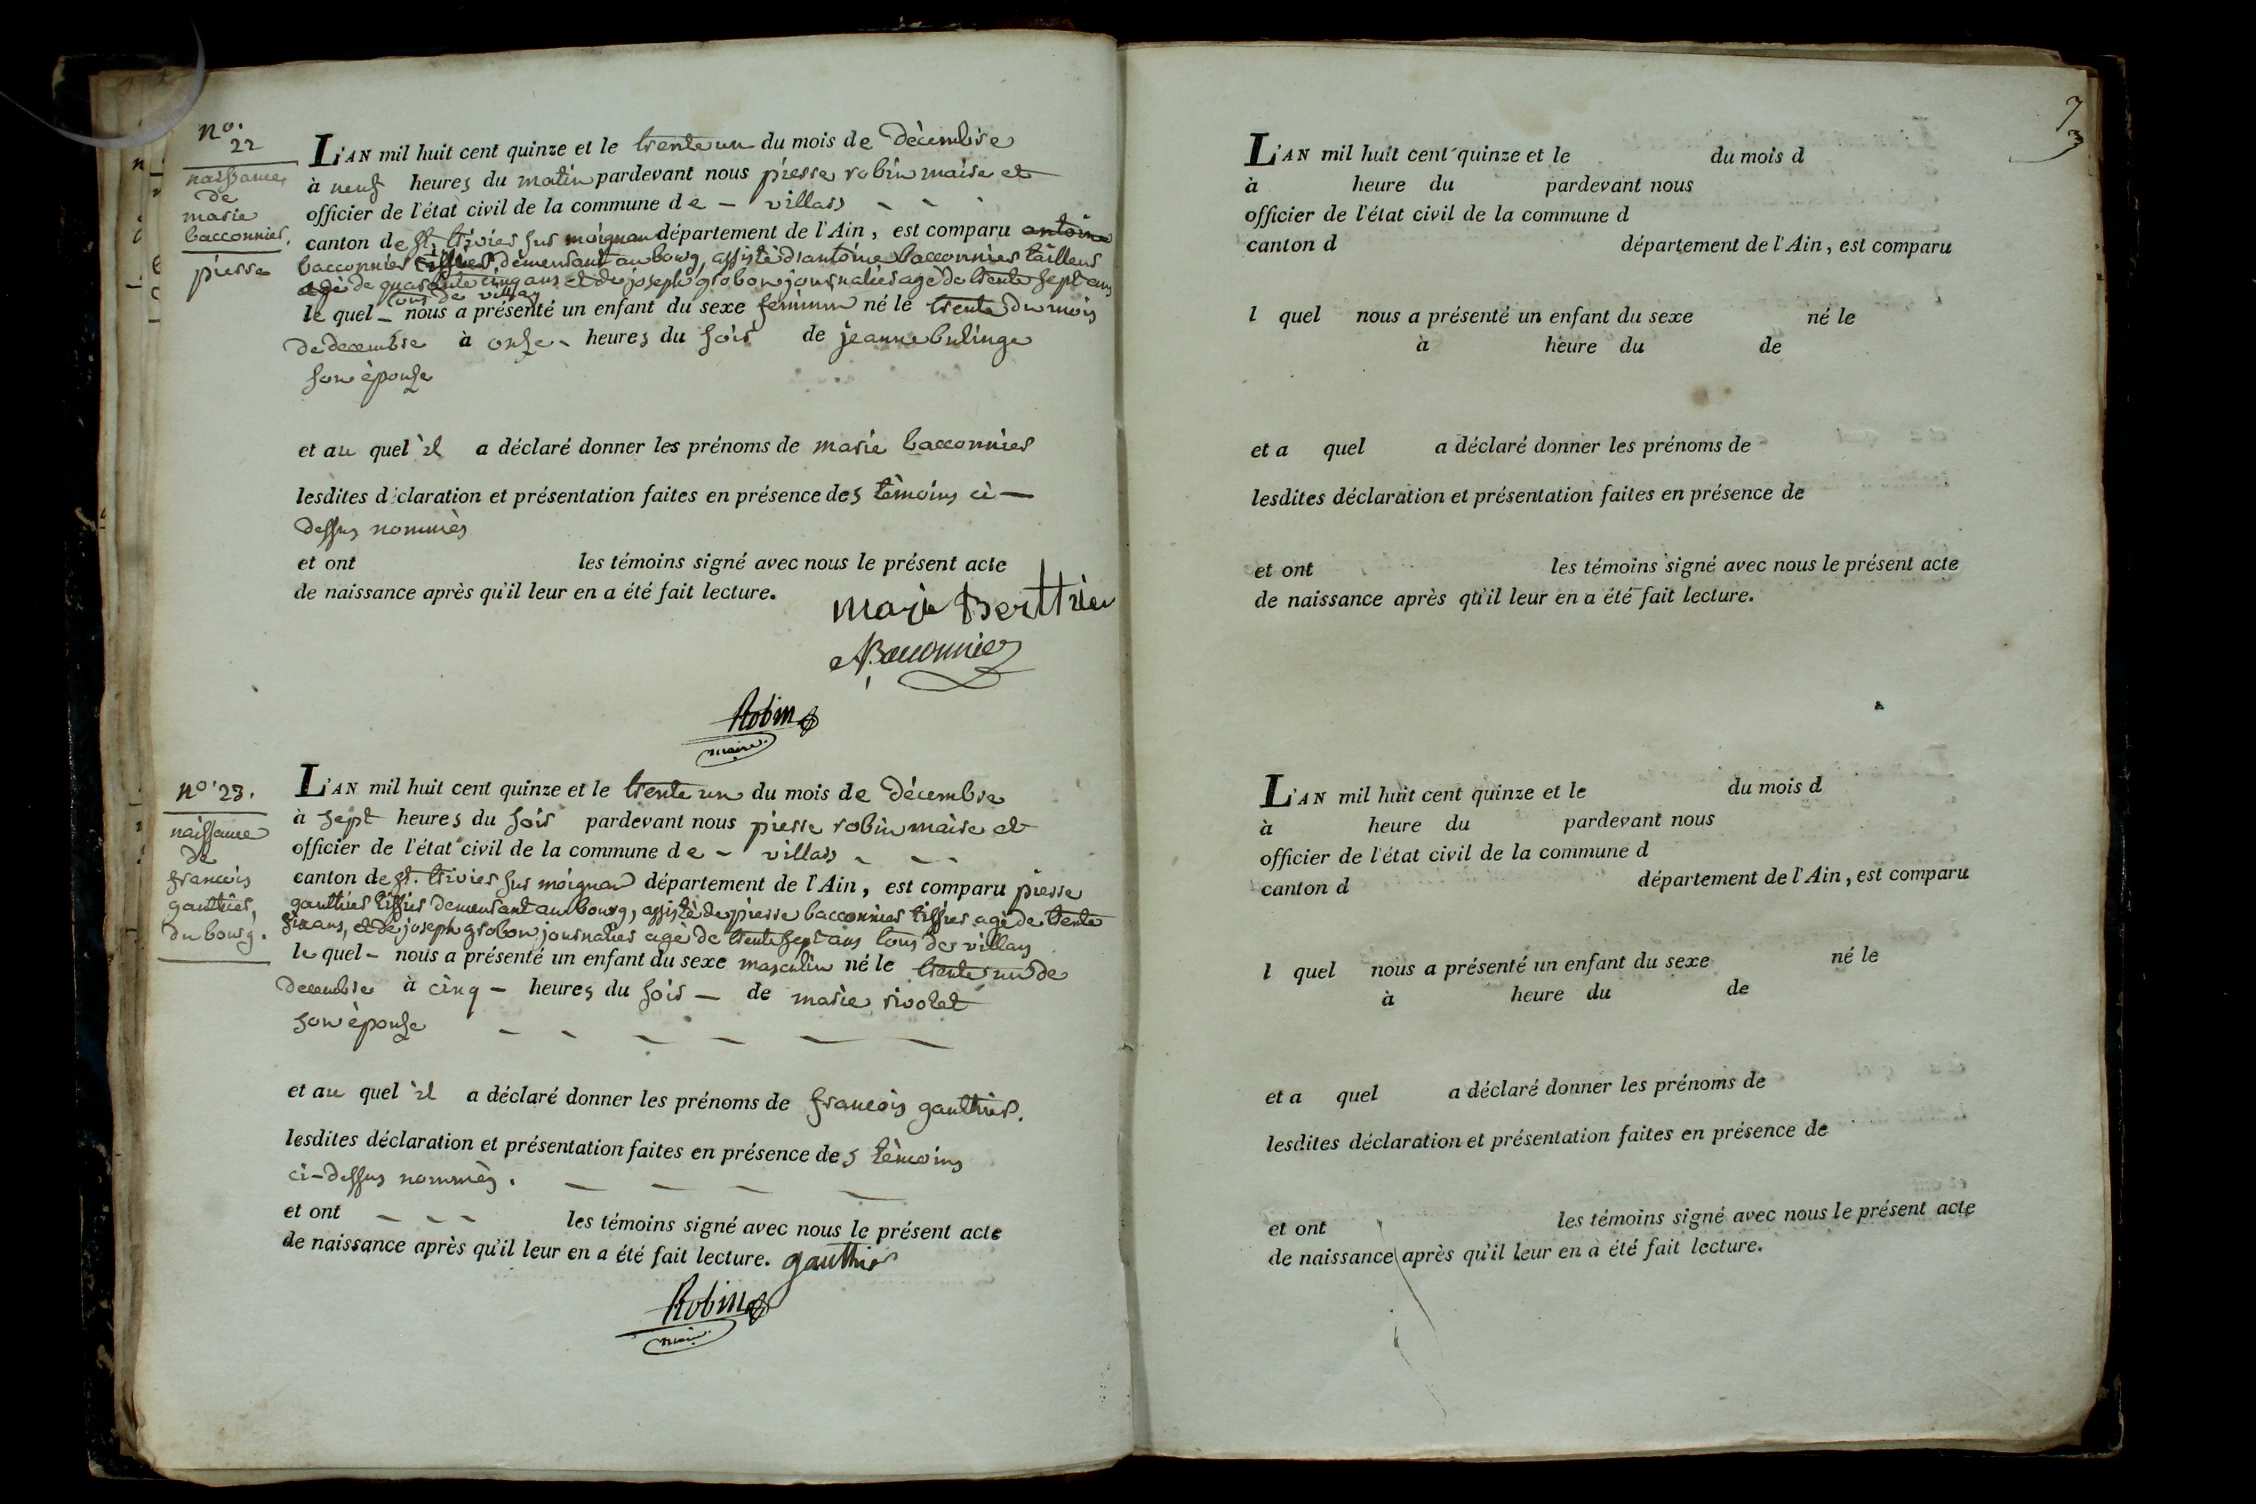 no.
22
naissance
de
marie
bacconnier.
pierre
L'AN mil huit cent quinze et le trente un du mois de décembre
à neuf heures du matin pardevant nous pierre robin maire et
officier de l'état civil de la commune de – villars – – -
canton de st. trivier sur moignan département de l'Ain, est comparu antoine
bacconnier tissier, demeurant au bourg, assisté d'antoine bacconnier tailleur
agé de quarante cinq ans et de joseph grobon journalier agé de trente sept ans
tous de villars
le quel – nous a présenté un enfant du sexe feminin né le trente du mois
de decembre à onze – heures du soir de jeanne bulinge
son épouse
et au quel il a déclaré donner les prénoms de marie bacconnier
lesdites déclaration et présentation faites en présence des témoins ci –
dessus nommés
et ont les témoins signé avec nous le présent acte
de naissance après qu'il leur en a été fait lecture.
marie Bertthier
ABacconnier
Robin
maire.
no. 23.
naissance
de
francois
gauthier,
du bourg.
L'AN mil huit cent quinze et le trente un du mois de décembre
à sept heures du soir pardevant nous pierre robin maire et
officier de l'état civil de la commune de – villars – – -
canton de st. trivier sur moignan département de l'Ain, est comparu pierre
gauthier tissier demeurant au bourg, assisté de pierre bacconnier tissier agé de trente
six ans, et de joseph grobon journalier agé de trente sept ans tous de villars
le quel – nous a présenté un enfant du sexe masculin né le trente un de
decembre à cinq – heures du soir – de marie rivolet
son épouse – – – – – –
et au quel il a déclaré donner les prénoms de francois gauthier.
lesdites déclaration et présentation faites en présence des témoins
ci-dessus nommés. – – – –
et ont – – – les témoins signé avec nous le présent acte
de naissance après qu'il leur en a été fait lecture. gauthier
Robin
maire.
7
L'AN mil huit cent quinze et le du mois d
à heure du pardevant nous
officier de l'état civil de la commune d
canton d département de l'Ain, est comparu
l quel nous a présenté un enfant du sexe né le
à heure du de
et a quel a déclaré donner les prénoms de
lesdites déclaration et présentation faites en présence de
et ont les témoins signé avec nous le présent acte
de naissance après qu'il leur en a été fait lecture.
L'AN mil huit cent quinze et le du mois d
à heure du pardevant nous
officier de l'état civil de la commune d
canton d département de l'Ain, est comparu
l quel nous a présenté un enfant du sexe né le
à heure du de
et a quel a déclaré donner les prénoms de
lesdites déclaration et présentation faites en présence de
et ont les témoins signé avec nous le présent acte
de naissance après qu'il leur en a été fait lecture.